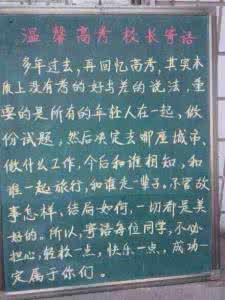 温馨高考 校长寄语
多年过去，再回忆高考，其实本
质上没有考的好与差的说法，重
要的是所有的年轻人在一起、做
份试题，然后决定去哪座城市、
做什么工作，今后和谁相知，和
谁一起旅行，和谁走一辈子。不管故
事怎样、结局如何，一切都是美
好的。所以，寄语每位同学，不必
担心，轻松一点，快乐一点，成功一
定属于你们。